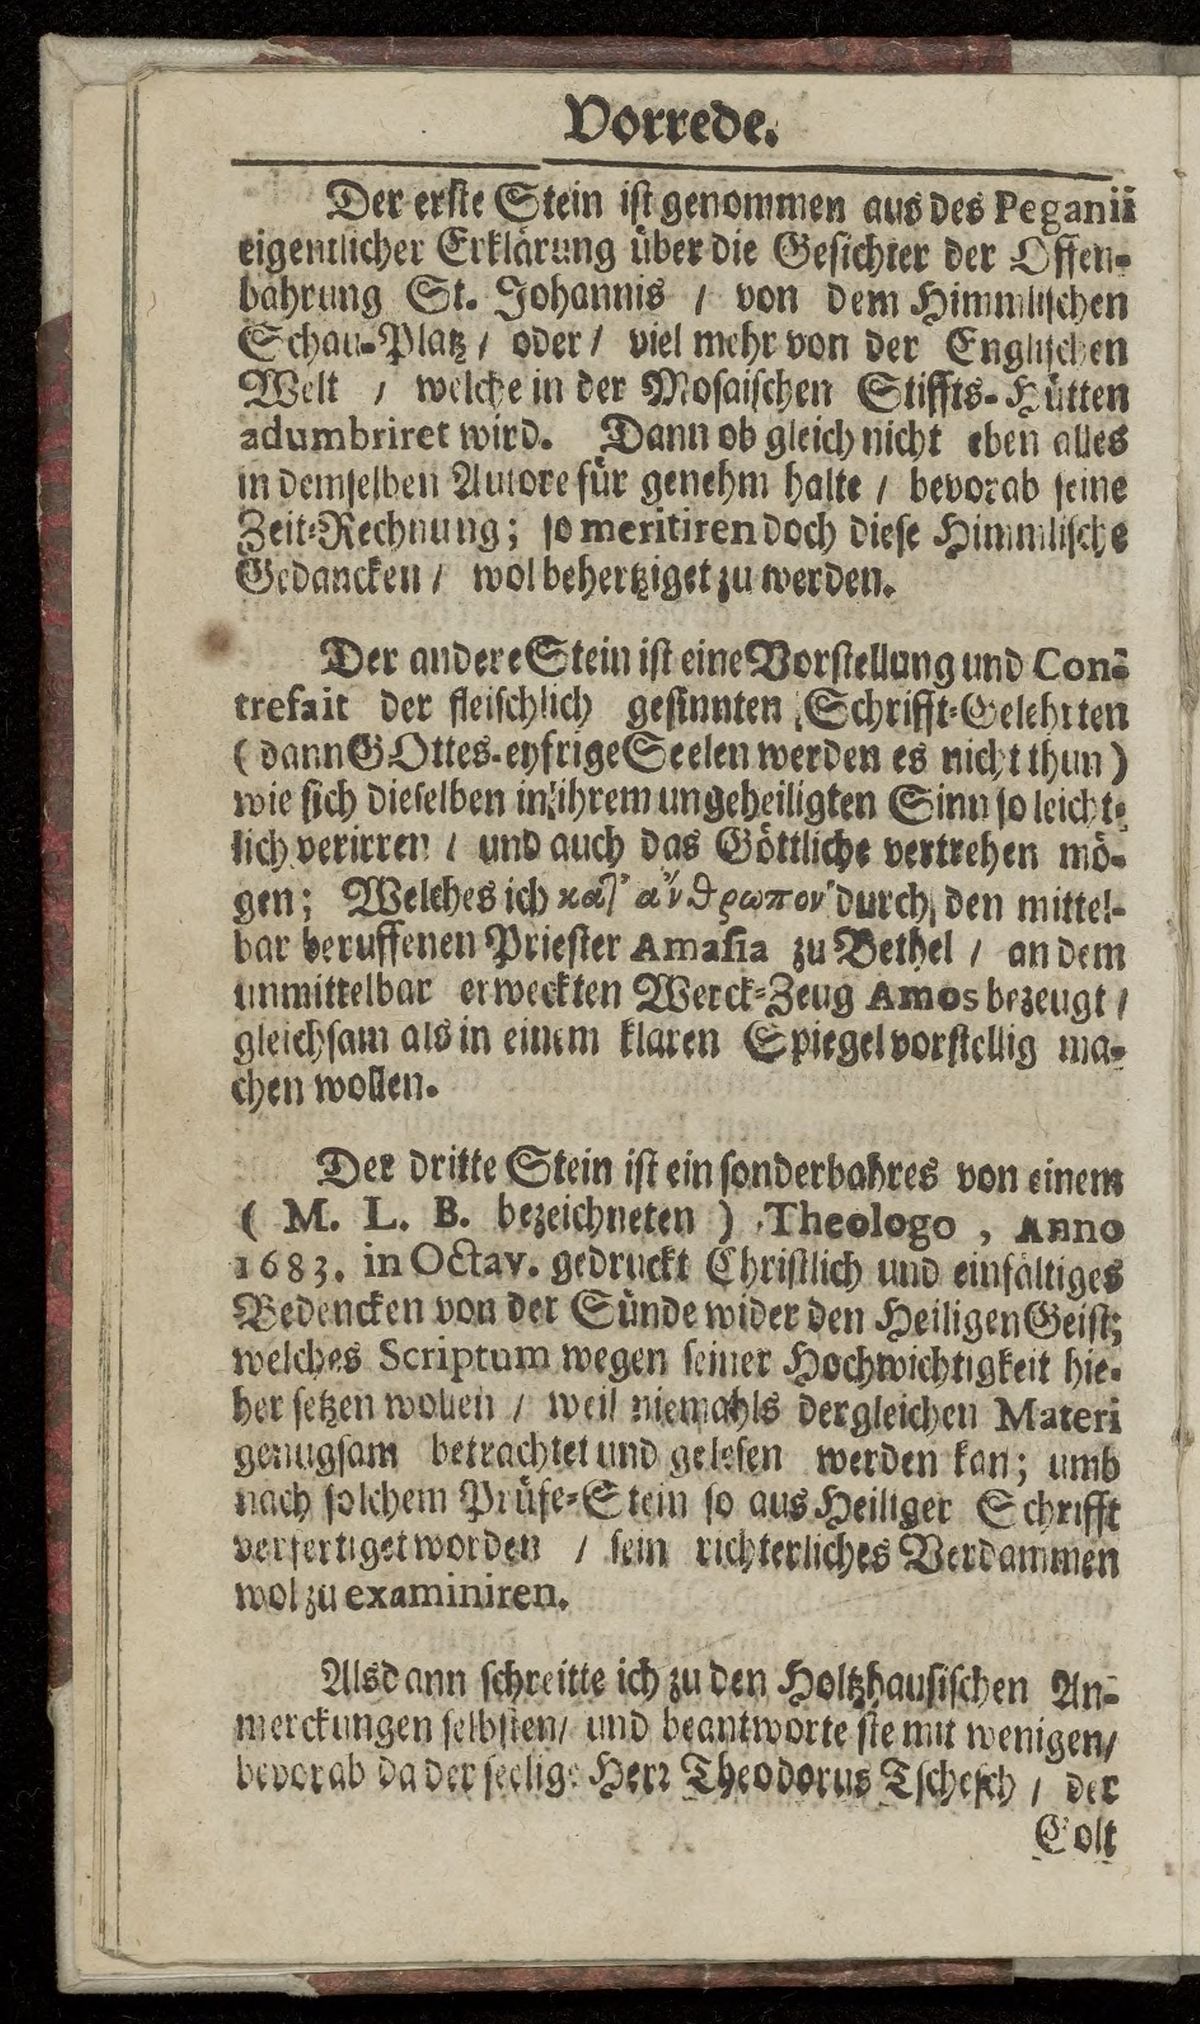 Vorrede.
Der erste Stein ist genommen aus des Peganii
eigentlicher Erklärung über die Gesichter der Offen-
bahrung St. Johannis / von dem Himmlischen
Schau-Platz / oder / viel mehr von der Englischen
Welt / welche in der Mosaischen Stiffts-Hütten
adumbriret wird. Dann ob gleich nicht eben alles
in demselben Autore für genehm halte / bevorab seine
Zeit-Rechnung; so meritiren doch diese Himmlische
Gedancken / wol behertziget zu werden.
Der andere Stein ist eine Vorstellung und Con-
trefait der fleischlich gesinnten Schrifft-Gelehrten
( dann GOttes-eyfrige Seelen werden es nicht thun )
wie sich dieselben in ihrem ungeheiligten Sinn so leicht-
lich verirren / und auch das Göttliche vertrehen mö-
gen; Welches ich κατ' ἄνθρωπον durch den mittel-
bar beruffenen Priester Amasia zu Bethel / an dem
unmittelbar erweckten Werck-Zeug Amos bezeugt /
gleichsam als in einem klaren Spiegel vorstellig ma-
chen wollen.
Der dritte Stein ist ein sonderbahres von einem
( M. L. B. bezeichneten ) Theologo , Anno
1683. in Octav. gedruckt Christlich und einfältiges
Bedencken von der Sünde wider den Heiligen Geist;
welches Scriptum wegen seiner Hochwichtigkeit hie-
her setzen wollen / weil niemahls dergleichen Materi
genugsam betrachtet und gelesen werden kan; umb
nach solchem Prüfe-Stein so aus Heiliger Schrifft
verfertiget worden / sein richterliches Verdammen
wol zu examiniren.
Alsdann schreitte ich zu den Holtzhausischen An-
merckungen selbsten / und beantworte sie mit wenigen /
bevorab da der seelige Herr Theodorus Tschesch / der
Colt